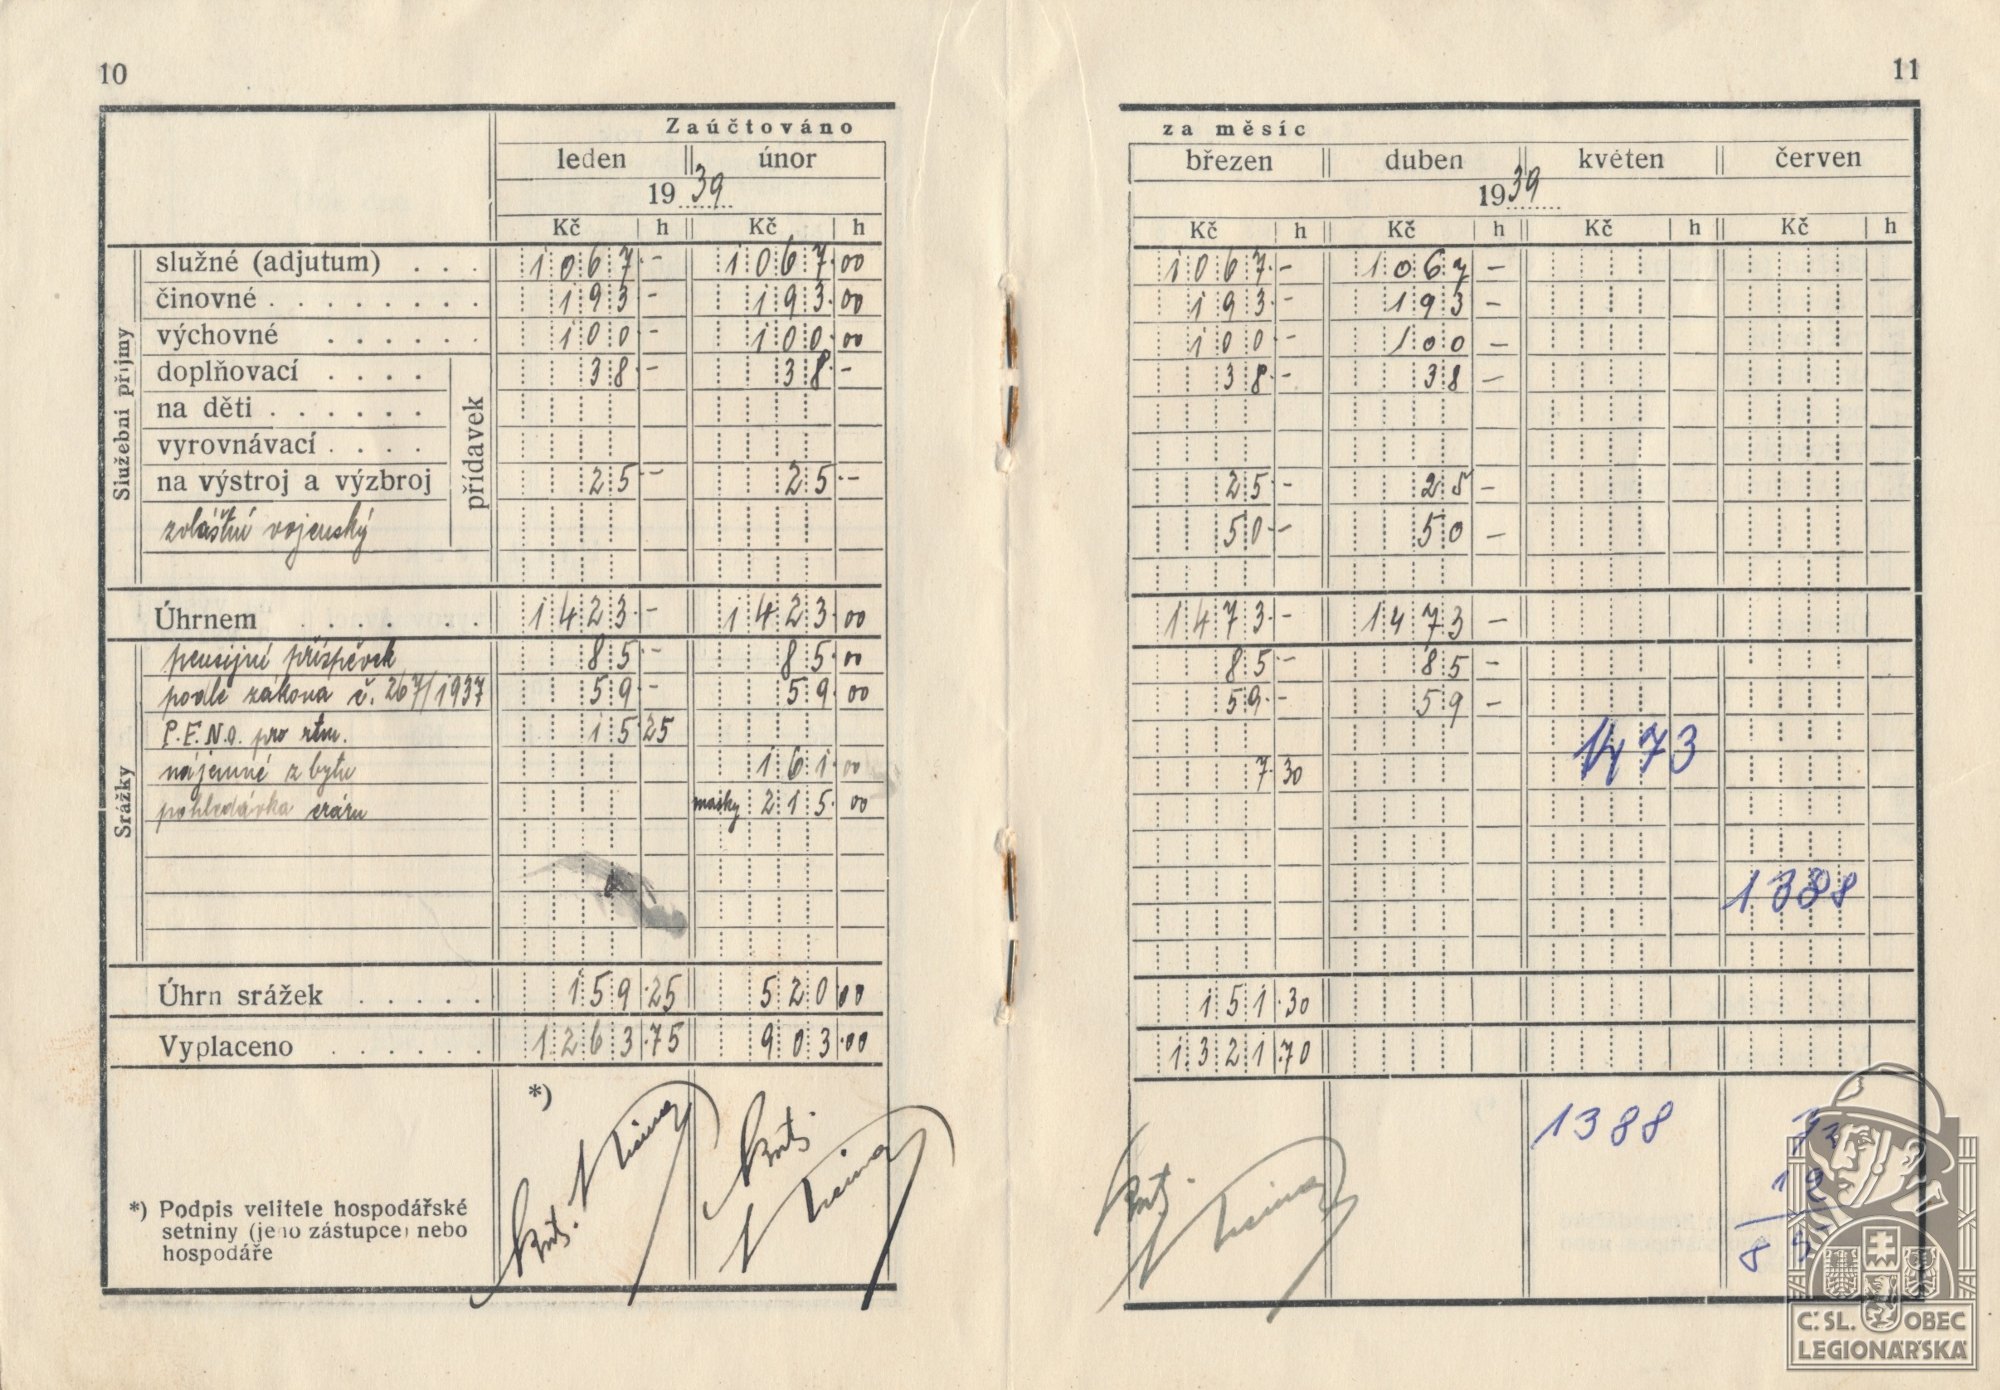 10
Zaúčtováno
leden únor
1939
Kč h Kč h
Služební příjmy
přídavek
služné (adjutum) . . . 1067 - 1067 00
činovné . . . . . . . . 193 - 193 00
výchovné . . . . . . 100 - 100 00
doplňovací . . . . 38 - 38 -
na děti . . . . . .
vyrovnávací . . . .
na výstroj a výzbroj 25 - 25 -
zvláštní vojenský
Úhrnem . . . . . . . 1423 - 1423 00
Srážky
pensijní příspěvek 85 - 85 00
podle zákona č. 267/1937 59 - 59 00
P.F.N.O. pro rtm. 15 25
nájemné z bytu 161 00
pohledávka eráru masky 215 00
Úhrn srážek . . . . . 159 25 520 00
Vyplaceno . . . . . . 1263 75 903 00
*)
*) Podpis velitele hospodářské
setniny (jeho zástupce) nebo
hospodáře
11
za měsíc
březen duben květen červen
1939
Kč h Kč h Kč h Kč h
1067 - 1067 -
193 - 193 -
100 - 100 -
38 - 38 -
25 - 25 -
50 - 50 -
1473 - 1473 -
85 - 85 -
59 - 59 -
1473
7 30
1388
151 30
1321 70
1388
73
12
85
Č.SL. OBEC
LEGIONÁŘSKÁ